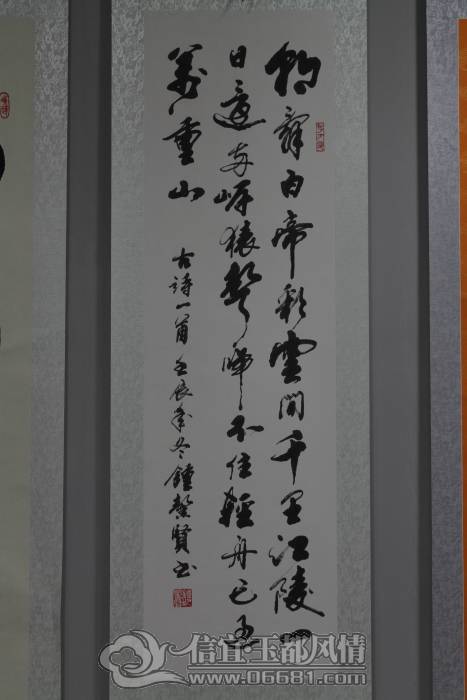 朝辞白帝彩雲間千里江陵一
日還兩岸猿聲啼不住輕舟已過
萬重山
古詩一首 壬辰年冬 鍾馨賢書
信宜玉都风情
www.06681.com